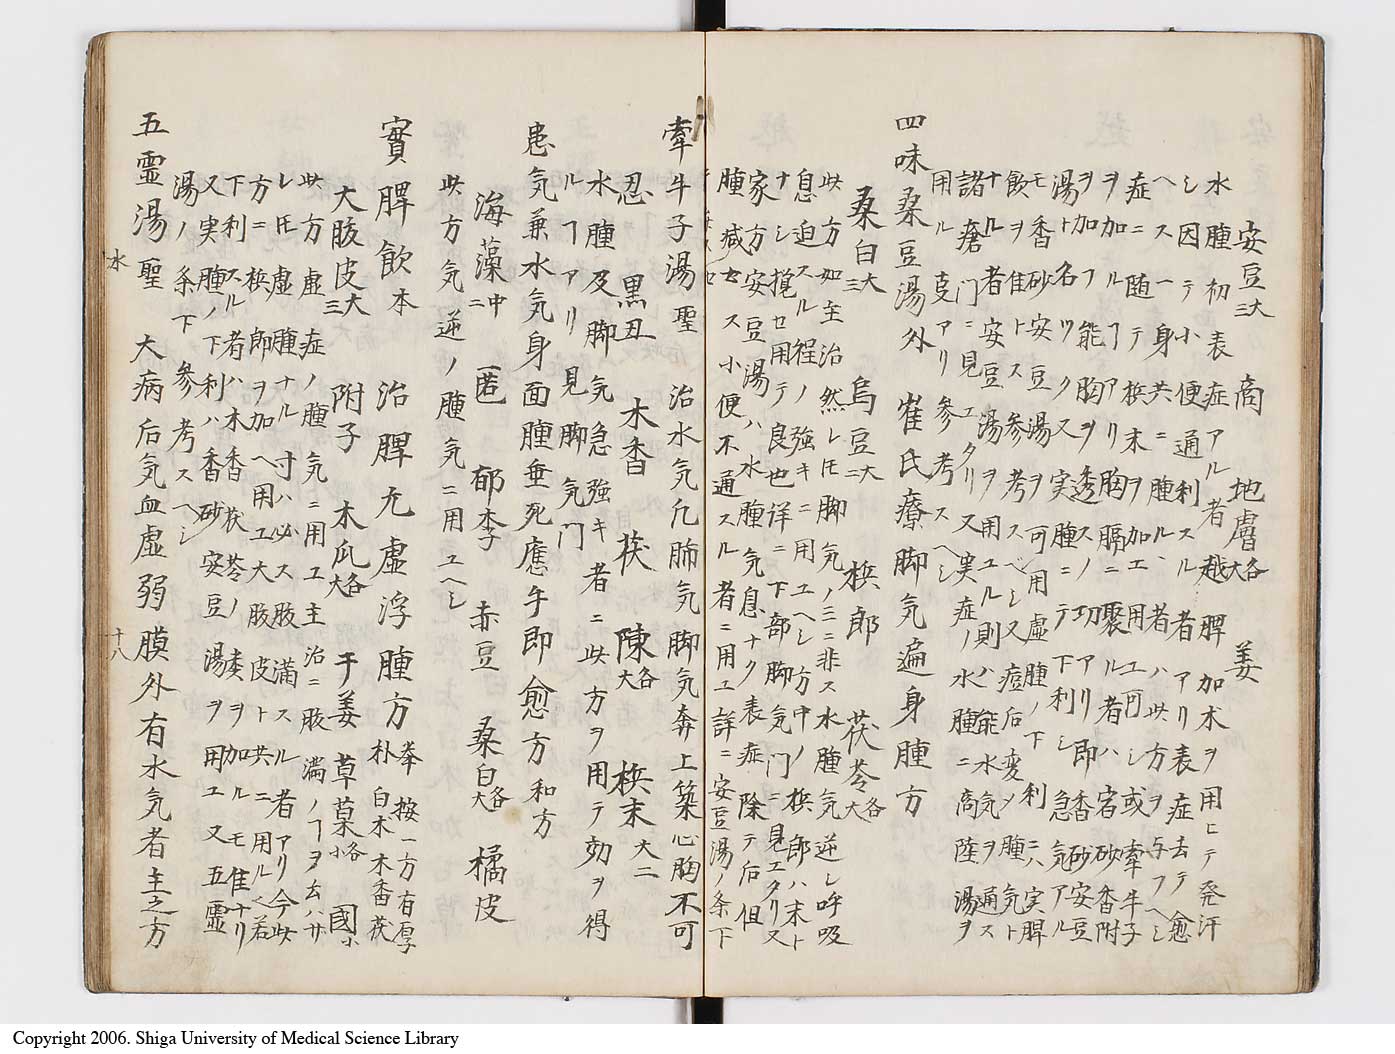 安豆大三 商 地膚各大 姜
水腫初表症アル者越脾加木ヲ用ヒテ発汗
シ因テ小便通利スル者アリ表症去テ愈
ヘス一身共ニ腫ル者ハ此方ヲ与フヘシ
症ニ随テ檳末ヲ加エ用ユ可シ或牽牛子
ヲ加ルヿアリ胸膈ニ聚ル者ハ宕砂香附
ヲ加フ能胸ヲ透スノ功アリ即香砂安豆
湯ト名ツク又実腫ニテ下利シ急気アル
モ香砂安豆湯ヲ可用虚腫ノ下利ニハ実脾
飲ヲ隹トス参考スベシ又痘后変ノ腫気ト
ナル者安豆湯ヲ用ユル則ハ能水気ヲ通ス
諸瘡門ニ見エタリ又実症ノ水腫ニ商陸湯ヲ
用ル亥アリ参考スヘシ
四味桒豆湯外 崔氏療脚気遍身腫方
桒白大三 烏豆大二 檳郎 茯苓各大
此方如至治然レ𪜈脚気ノ三ニ非ス水腫気逆シ呼吸
息迫スル程ノ強キニ用ユヘシ方中ノ檳郎ハ末ト
ナシ攪セ用テ良也詳ニ下部脚気門ニ見エタリ又
家方安豆湯ハ水腫気息ナク表症除テ后但
腫減セス小便不通スル者ニ用ユ詳ニ安豆湯ノ条下
牽牛子湯聖 治水気凢肺気脚気奔上築心胸不可
忍 黒丑 木香 茯 陳各大 檳末大二
水腫及脚気急強キ者ニ此方ヲ用テ効ヲ得
ルヿアリ見脚気門
患気兼水気身面腫垂死應午即愈方和方
海藻中二 一匿 郁李 赤豆 桒白各大 橘皮
此方気逆ノ腫気ニ用ユヘシ
實脾飲本 治脾元虚浮腫方 按一方有厚朴白木木香茂
大腹皮大三 附子 木瓜各大 干姜 草菓各小 國小
此方虚症ノ腫気ニ用ユ主治ニ腹満ノヿヲ厶ハサ
レ𪜈虚腫ナル寸ハ必ス腹満スル者アリ今此
方ニ檳郎ヲ加ヘ用ユ大腹皮ト共ニ用ルヘ若
下利スル者ハ木香茯苓ノ末ヲ加ルモ隹ナリ
又実腫ノ下利ハ香砂安豆湯ヲ用ユ又五霊
湯ノ条下参考スヘシ
五霊湯聖 大病后気血虚弱膜外有水気者主之方
水 十八
Copyright 2006. Shiga University of Medical Science Library